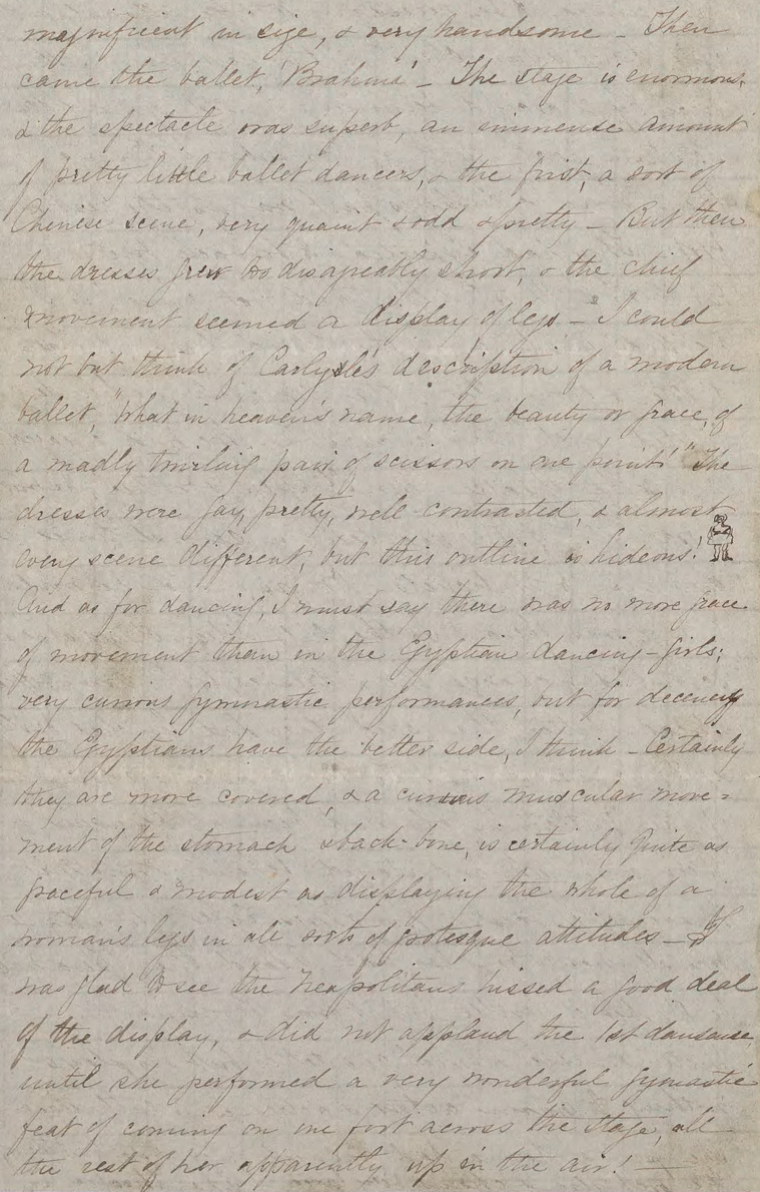 magnificent in size, & very handsome - Then
came the ballet, 'Brahma' - The stage is enormous,
& the spectacle was superb, an immense amount
of pretty little ballet dancers, & the first, a sort of
Chinese scene, very quaint & odd & pretty - But then
the dresses grew so disagreeably short, & the chief
movement seemed a display of legs - I could
not but think of Carlyle's description of a modern
ballet, "What in heaven's name, the beauty or grace, of
a madly twirling pair of scissors on one point!" The
dresses were gay, pretty, well contrasted, & almost
every scene different, but this outline is hideous!
And as for dancing, I must say there was no more grace
of movement than in the Egyptian dancing-girls;
very curious gymnastic performances, but for decency
the Egyptians have the better side, I think - Certainly
they are more covered, & a curious muscular move=
ment of the stomach & back-bone, is certainly quite as
graceful & modest as displaying the whole of a
woman's legs in all sorts of grotesque attitudes - I
was glad to see the Neapolitans hissed a good deal
of the display, & did not applaud the 1st danseuse,
until she performed a very wonderful gymnastic
feat of coming on one foot across the stage, all
the rest of her apparently up in the air! -